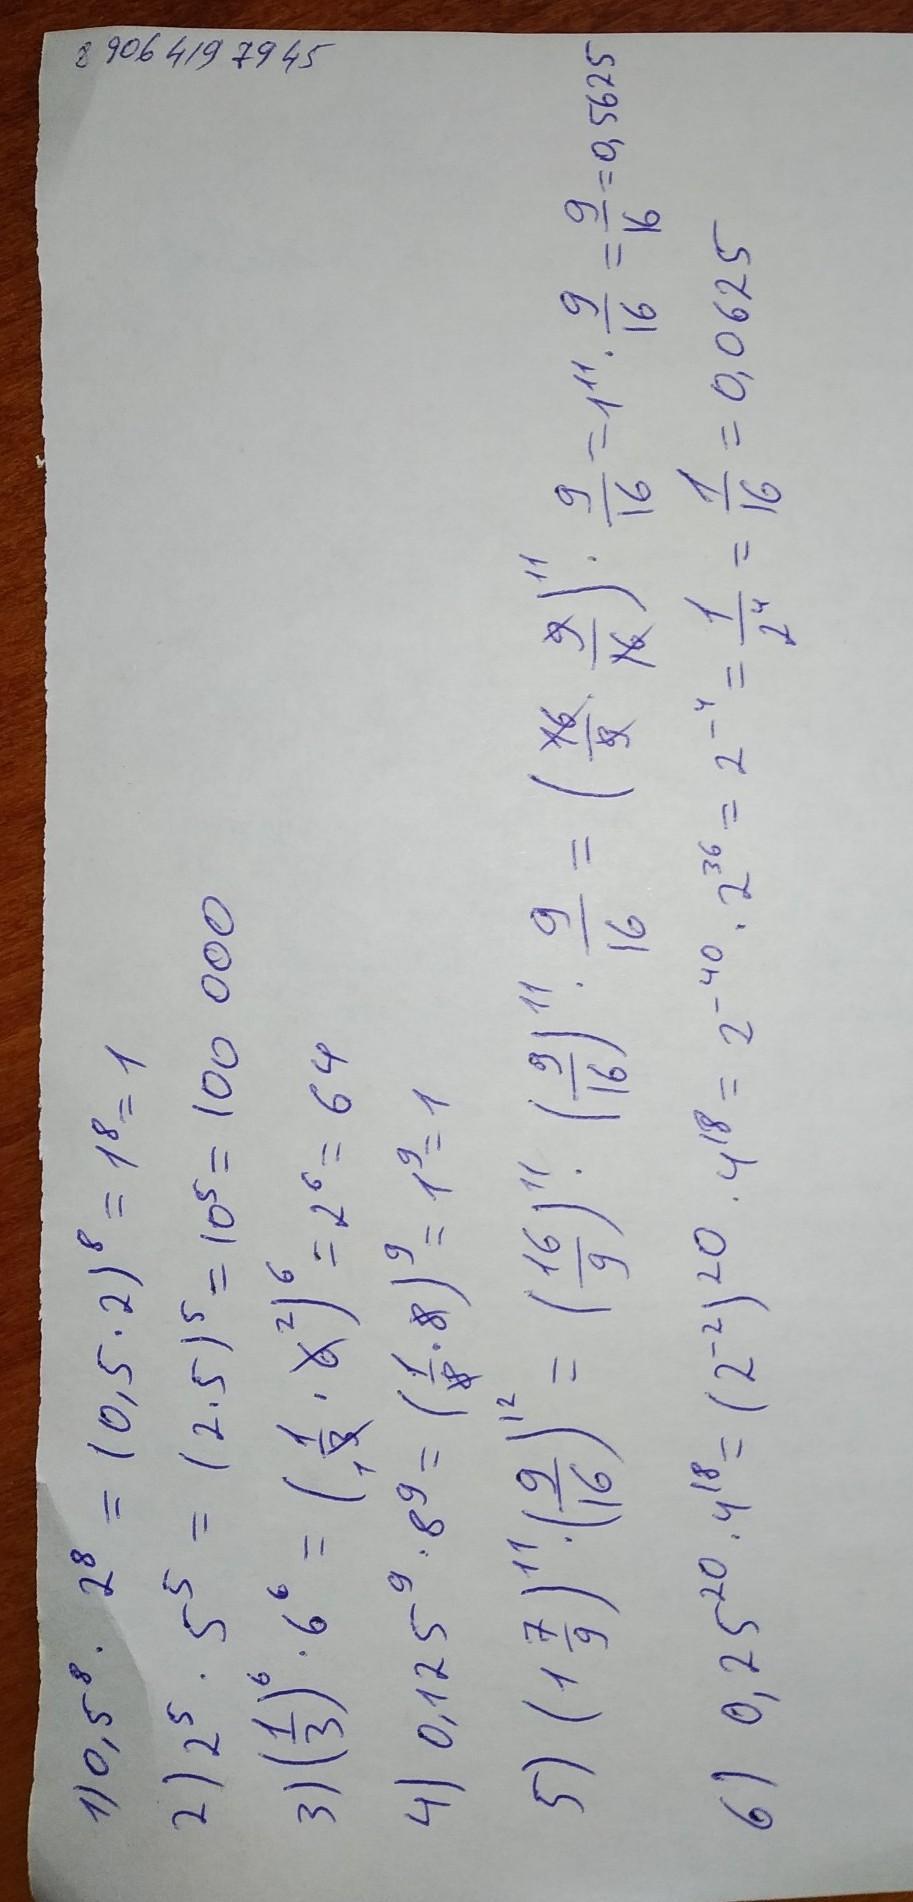 8 906 419 79 45
1) 0,5⁸ · 2⁸ = (0,5 · 2)⁸ = 1⁸ = 1
2) 2⁵ · 5⁵ = (2 · 5)⁵ = 10⁵ = 100 000
3) (1/3)⁶ · 6⁶ = (1/3 · 6)⁶ = 2⁶ = 64
4) 0,125⁹ · 8⁹ = (1/8 · 8)⁹ = 1⁹ = 1
5) (1 7/9)¹¹ · (9/16)¹² = (16/9)¹¹ · (9/16)¹¹ · 9/16 = (16/9 · 9/16)¹¹ · 9/16 = 1¹¹ · 9/16 = 9/16 = 0,5625
6) 0,25²⁰ · 4¹⁸ = (2⁻²)²⁰ · 4¹⁸ = 2⁻⁴⁰ · 2³⁶ = 2⁻⁴ = 1/2⁴ = 1/16 = 0,0625